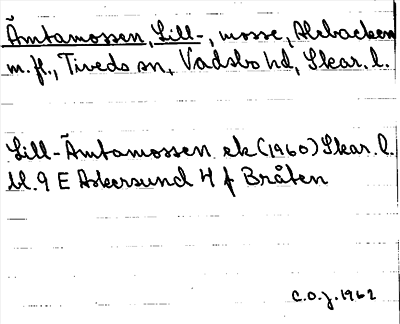 Ämtamossen, Lill-, mosse, Alebacken
m. fl., Tiveds sn, Vadsbo hd, Skar. l.
Lill-Ämtamossen ek (1960) Skar. l.
bl. 9 E Askersund 4 f Bråten
C.O.J. 1962